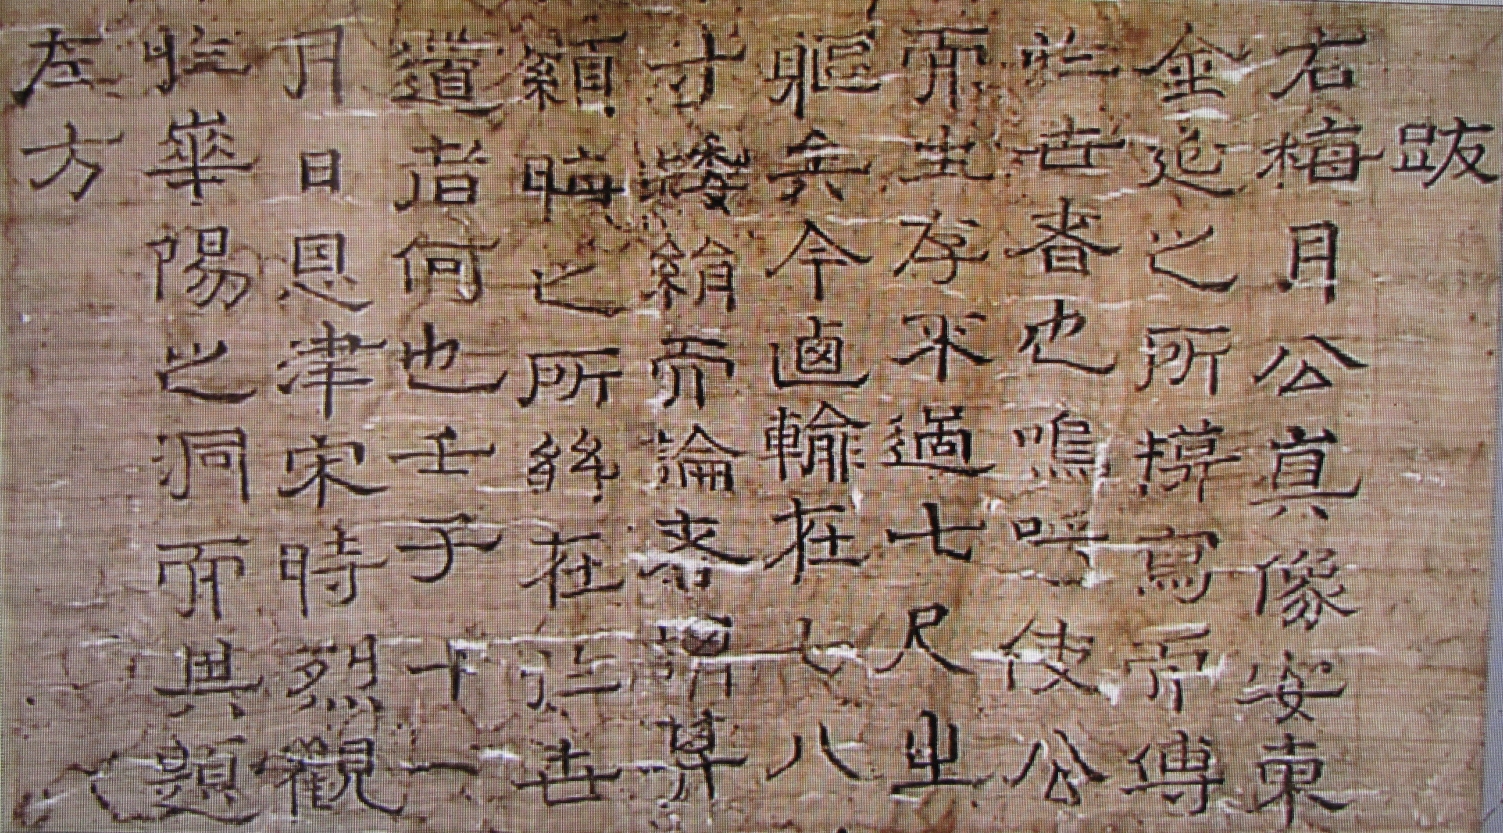 跋
右梅月公真像安東
金延之所摸寫而傳
於世者也嗚呼使公
而生存不過七尺之
軀矣今鹵輸在七八
寸綃而論者謂
顯晦之所繇在於世
道者何也壬子十一
月日恩津宋時烈觀
於華陽之洞而題
左方